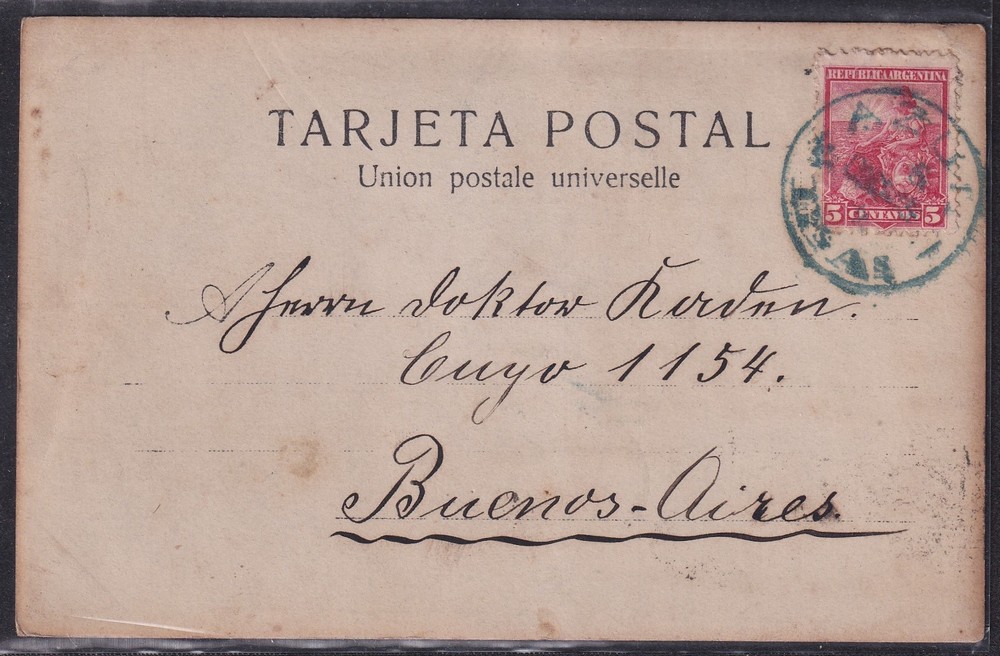 TARJETA POSTAL
Union postale universelle
REPÚBLICA ARGENTINA
5 CENTAVOS 5
Herrn Doktor Kaden.
Cuyo 1154.
Buenos-Aires.